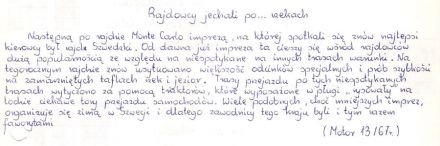 Rajdowcy jechali po... rzekach
Następną po rajdzie Monte Carlo imprezą, na której spotkali się znów najlepsi
kierowcy był rajd Szwedzki. Od dawna już impreza ta cieszy się wśród rajdowców
dużą popularnością ze względu na niespotykane na innych trasach warunki. Na
tegorocznym rajdzie znów usytuowano większość odcinków specjalnych i prób szybkości
na zamarzniętych taflach rzek i jezior. Trasy przejazdu po tych niespotykanych
trasach wytyczono za pomocą traktorów, które wyposażone w pługi "ryowały" na
lodzie ciekawe tony przejazdu samochodów. Wiele podobnych, choć mniejszych imprez,
organizuje się zimą w Szwecji i dlatego zawodnicy tego kraju byli i tym razem
faworytami.
(Motor 13/67r.)